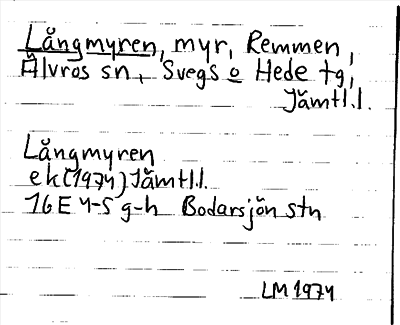 Långmyren, myr, Remmen,
Älvros sn, Svegs o Hede tg,
Jämtl.l.
Långmyren
ek(1974) Jämtl.l.
16E 4-5 g-h Bodarsjön stn
LM 1974